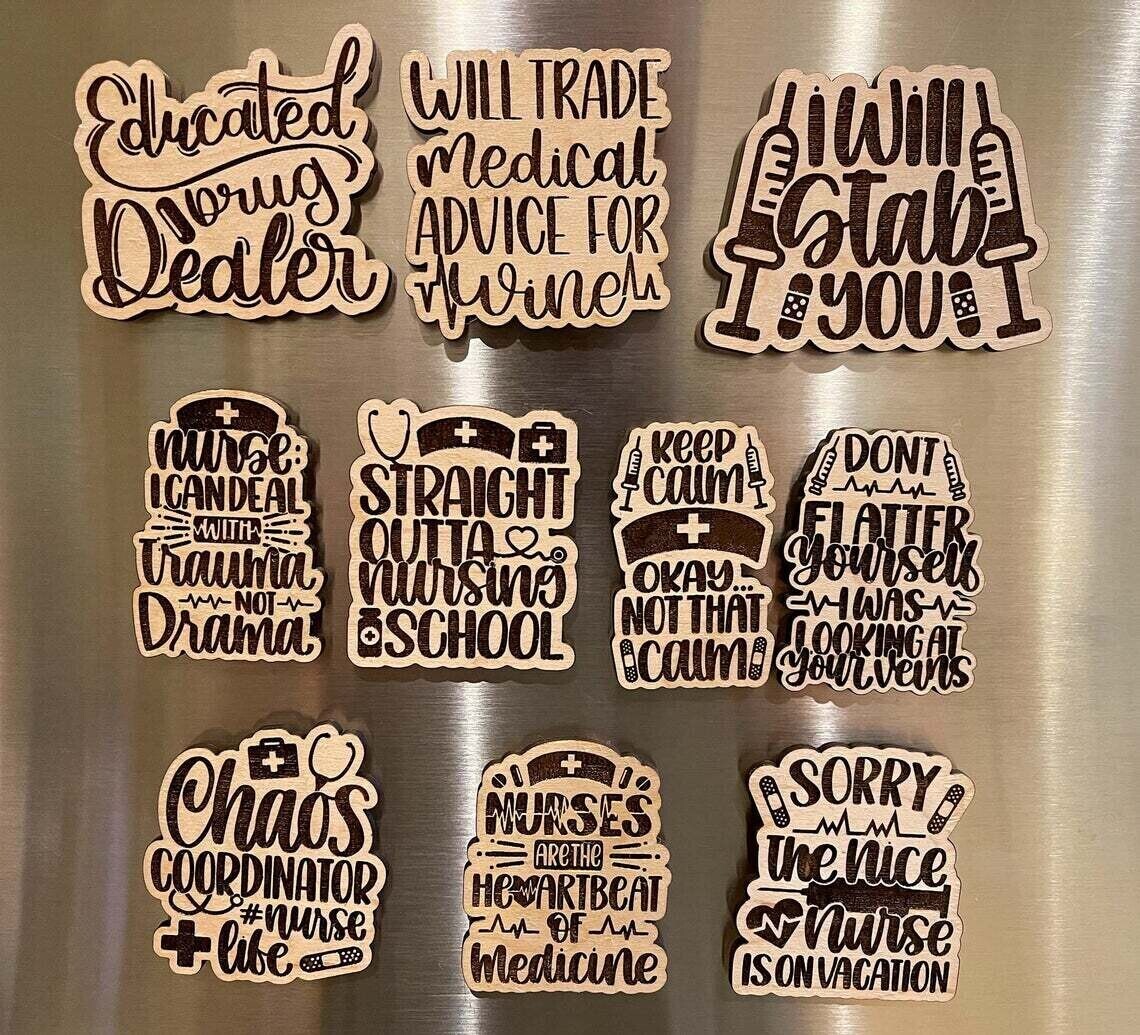 Educated
Drug
Dealer
WILL TRADE
medical
ADVICE FOR
wine
i will
Stab
YOU
nurse:
I CAN DEAL
WITH
Trauma
NOT
Drama
STRAIGHT
OUTTA
nursing
SCHOOL
KEEP
calm
OKAY...
NOT THAT
calm
DONT
FLATTER
yourself
I WAS
LOOKING AT
your veins
Chaos
COORDINATOR
#nurse
life
NURSES
ARE THE
HEARTBEAT
OF
medicine
SORRY
the nice
nurse
IS ON VACATION